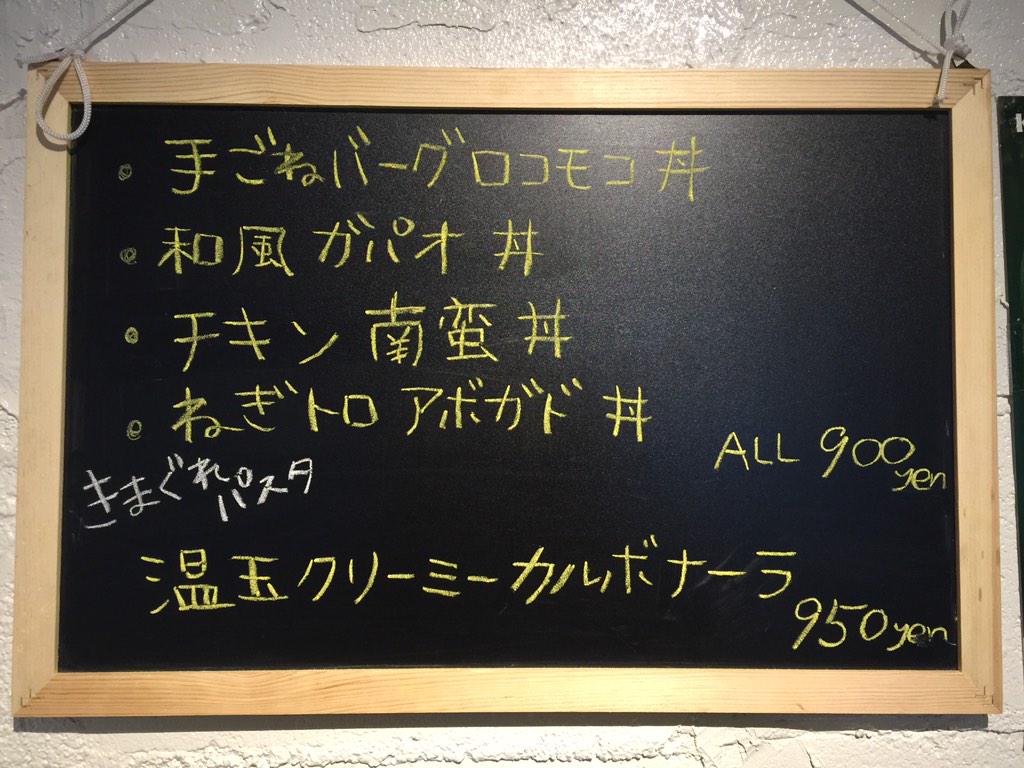 ・手ごねバーグロコモコ丼
・和風 ガパオ 丼
・チキン 南蛮 丼
・ねぎトロ アボガド 丼
ALL 900yen
きまぐれパスタ
温玉クリーミーカルボナーラ
950yen